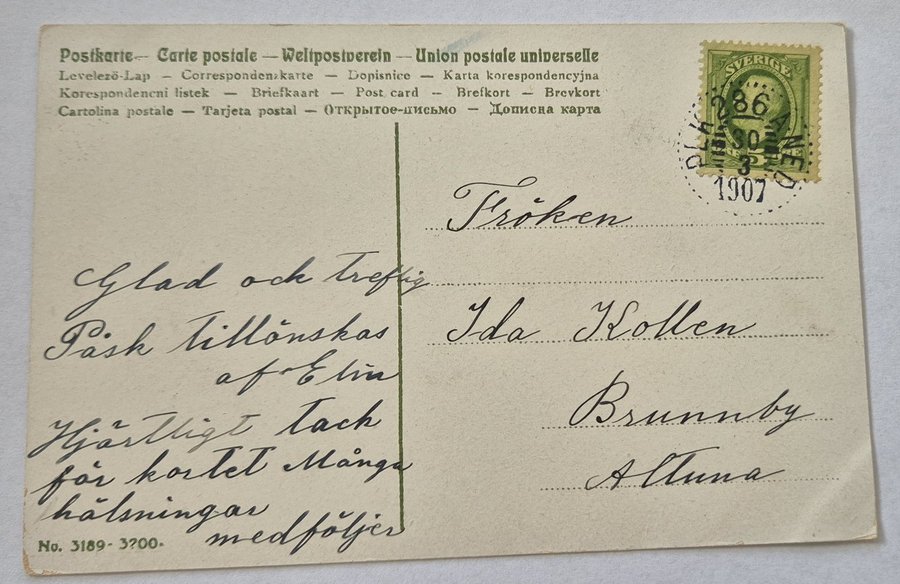 Postkarte — Carte postale — Weltpostverein — Union postale universelle
Levelező-Lap — Correspondenzkarte — Dopisnice — Karta korespondencyjna
Korespondencni listek — Briefkaart — Post card — Brefkort — Brevkort
Cartolina postale — Tarjeta postal — Открытое-письмо — Дописна карта
SVERIGE
286
30
3
1907
Fröken
Ida Kollen
Brunnby
Altuna
Glad och treflig
Påsk tillönskas
af Elin
Hjärtligt tack
för kortet Många
hälsningar
medföljer
No. 3189-3200.